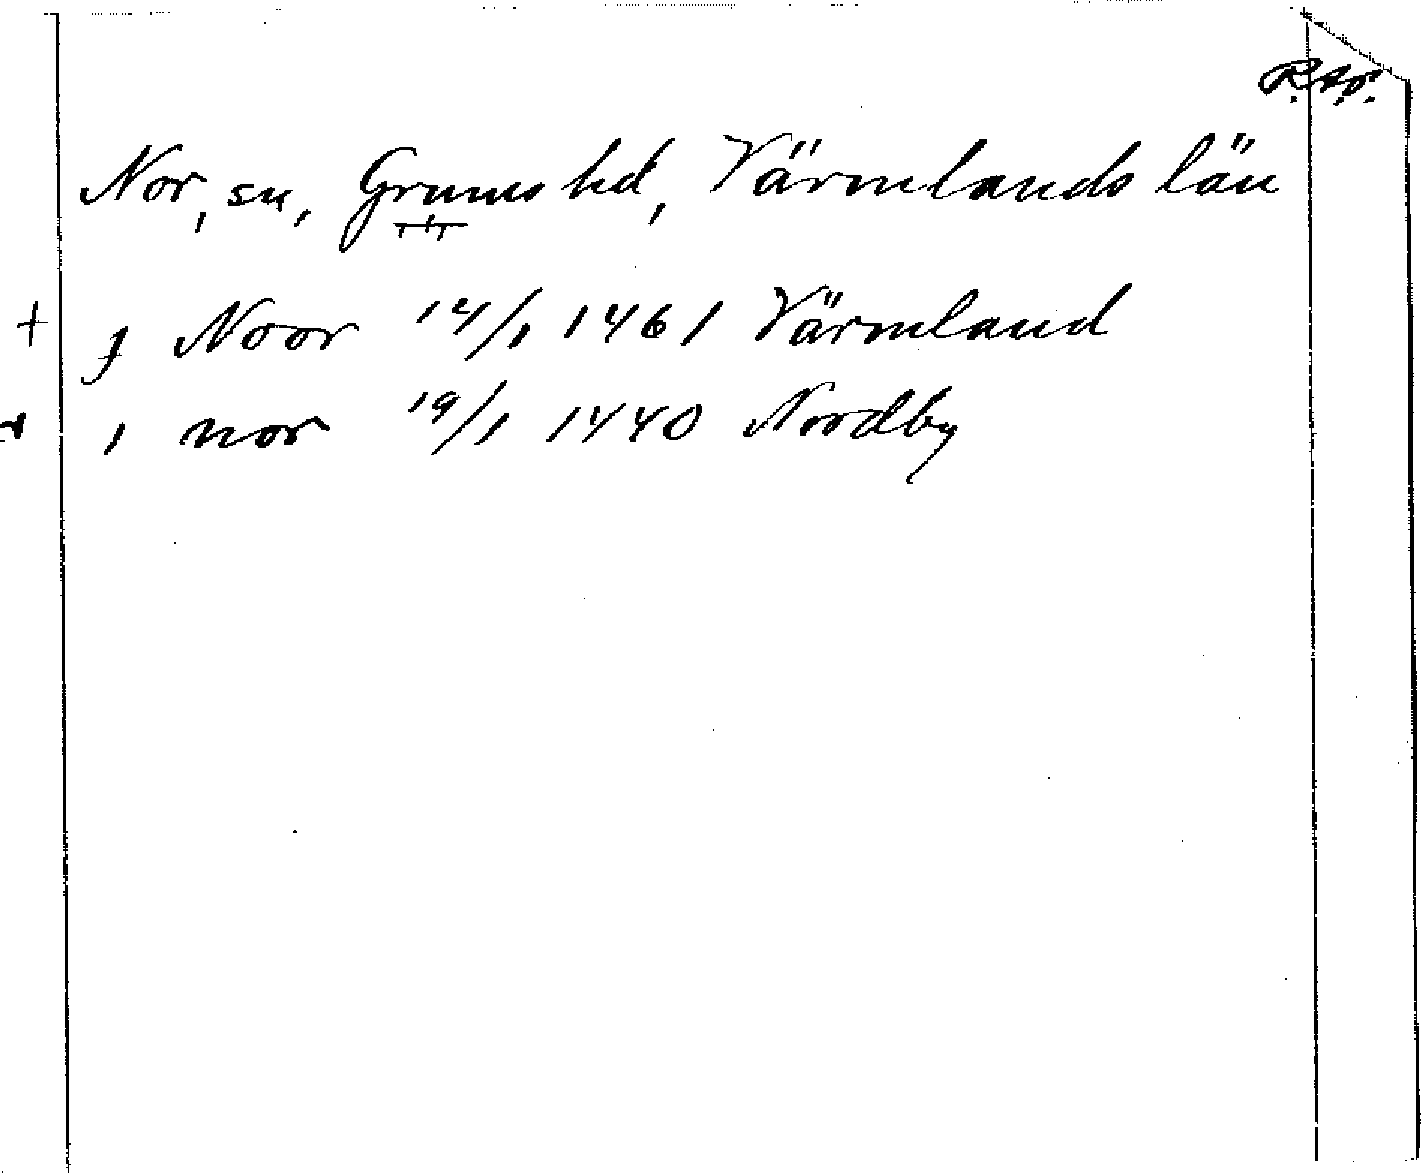 R.A.P.
Nor, sn, Grums hd, Värmlands län
+ j Noor 14/1 1461 Värmland
ı nor 19/1 1440 Nordby